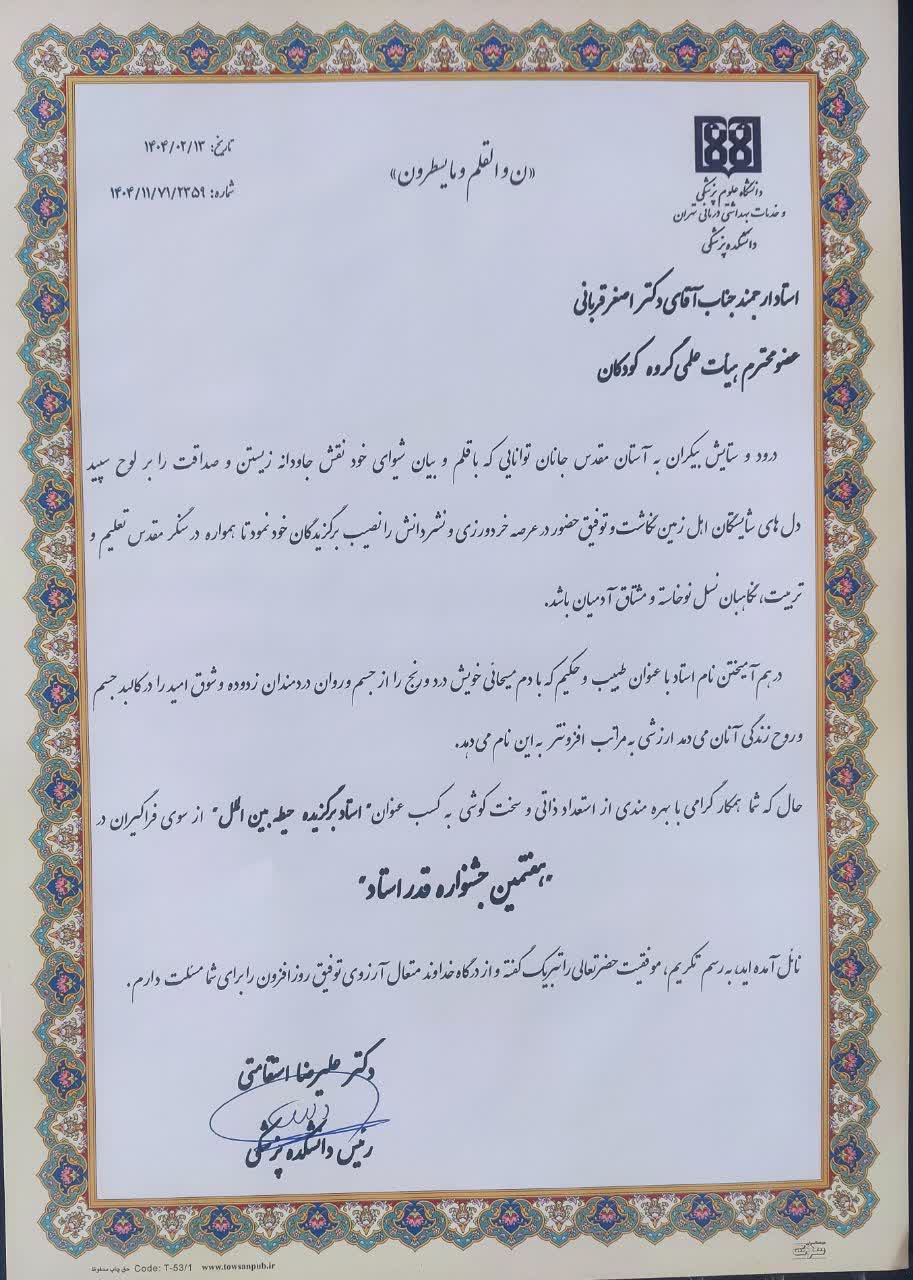 تاریخ: ۱۴۰۴/۰۲/۱۳
شماره: ۱۴۰۴/۱۱/۷۱/۲۳۵۹
«ن و القلم و ما یسطرون»
دانشگاه علوم پزشکی
و خدمات بهداشتی درمانی تهران
دانشکده پزشکی
استاد ارجمند جناب آقای دکتر اصغر قربانی
عضو محترم هیأت علمی گروه کودکان
درود و ستایش بیکران به آستان مقدس جانان توانایی که با قلم و بیان شیوای خود نقش جاودانه زیستن و صداقت را بر لوح سپید
دل های شایستگان اهل زمین نگاشت و توفیق حضور در عرصه خردورزی و نشر دانش را نصیب برگزیدگان خود نمود تا همواره در سنگر مقدس تعلیم و
تربیت، نگاهبان نسل نوخاسته و مشتاق آدمیان باشد.
در هم آمیختن نام استاد با عنوان طبیب و حکیم که با دم مسیحائی خویش درد و رنج را از جسم و روان دردمندان زدوده و شوق امید را در کالبد جسم
و روح زندگی آنان می دمد ارزشی به مراتب افزونتر به این نام می دهد.
حال که شما همکار گرامی با بهره مندی از استعداد ذاتی و سخت کوشی به کسب عنوان "استاد برگزیده حیطه بین الملل" از سوی فراگیران در
"هفتمین جشنواره قدر استاد"
نائل آمده اید، به رسم تکریم، موفقیت حضرتعالی را تبریک گفته و از درگاه خداوند متعال آرزوی توفیق روزافزون را برای شما مسئلت دارم.
دکتر علیرضا استقامتی
رئیس دانشکده پزشکی
حق چاپ محفوظ Code: T-53/1 www.towsanpub.ir